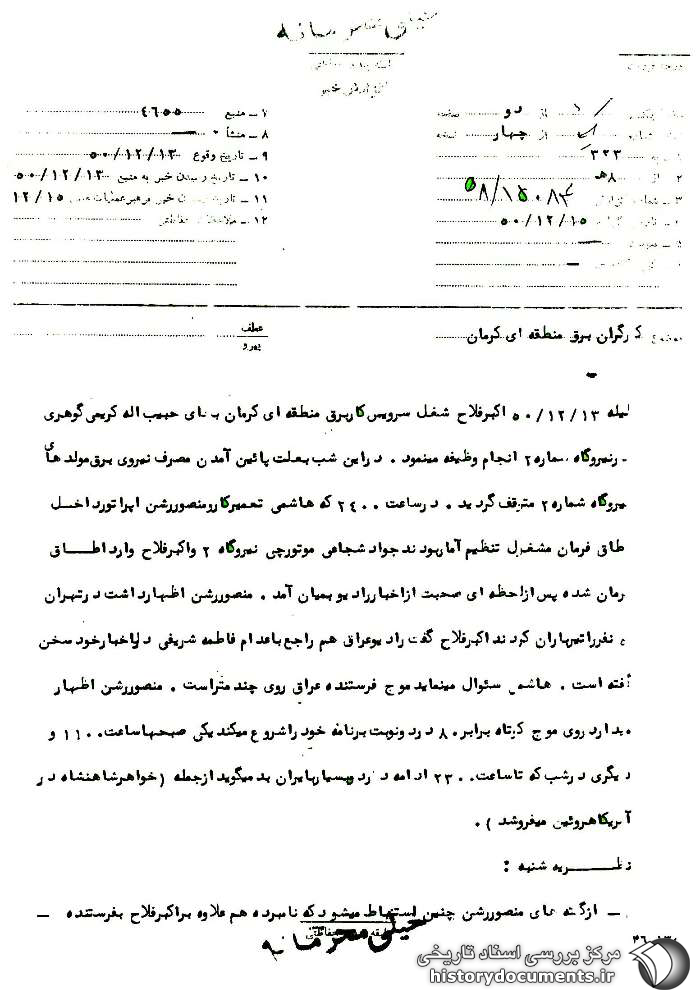 خیلی محرمانه
۱ از دو صفحه
از چهار نسخه
۳۲۳
۲ - از ۸ه‍
۳ - شماره ۸/۱۵۰۸۴
۵۰/۱۲/۱۵
۷ - منبع ۴۶۵۵
۸ - منشأ
۹ - تاریخ وقوع ۵۰/۱۲/۱۳
۱۰ - تاریخ رسیدن خبر به منبع ۵۰/۱۲/۱۳
۱۱ - تاریخ رسیدن خبر به رهبر عملیات ۱۲/۱۵
۱۲ - ملاحظات حفاظتی
موضوع کارگران برق منطقه ای کرمان
عطف
پیرو
لیله ۵۰/۱۲/۱۳ اکبر فلاح شغل سرویس کار برق منطقه ای کرمان بجای حبیب اله کریمی گوهری
نیروگاه شماره ۲ انجام وظیفه مینمود . در این شب بعلت پائین آمدن مصرف نیروی برق مولد های
نیروگاه شماره ۲ متوقف گردید . در ساعت ۲۴۰۰ که هاشمی تعمیرکار و منصور رشن اپراتور داخل
اطاق فرمان مشغول تنظیم آمار بودند جواد شجاعی موتورچی نیروگاه ۲ و اکبر فلاح وارد اطاق
فرمان شده پس از لحظه ای صحبت از اخبار رادیو بمیان آمد . منصور رشن اظهار داشت در تهران
نفر را تیرباران کردند اکبر فلاح گفت رادیو عراق هم راجع باعدام فاطمه شریفی در اخبار خود سخن
گفته است . هاشمی سئوال مینماید موج فرستنده عراق روی چند متر است . منصور رشن اظهار
میدارد روی موج کوتاه برابر ۸۰ در دو نوبت برنامه خود را شروع میکند یکی صبحها ساعت ۱۱۰۰ و
دیگری در شب که تا ساعت ۲۳۰۰ ادامه دارد و بسیار بایران بد میگوید از جمله ( خواهر شاهنشاه در
آمریکا هروئین میفروشد ) .
نظریه شنبه :
ـ از گفته های منصور رشن چنین استنباط میشود که نامبرده هم علاوه بر اکبر فلاح بفرستنده ـ
خیلی محرمانه
مرکز بررسی اسناد تاریخی
historydocuments.ir